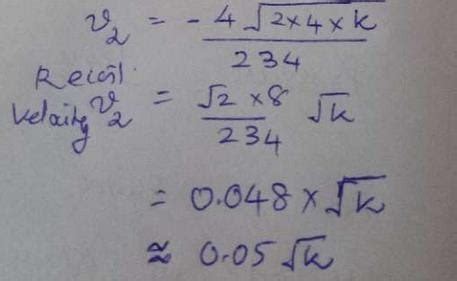 v₂ = - 4 √2×4×k
234
Recoil
Velocity v₂ = √2 ×8 √k
234
= 0.048 × √k
≈ 0.05 √k